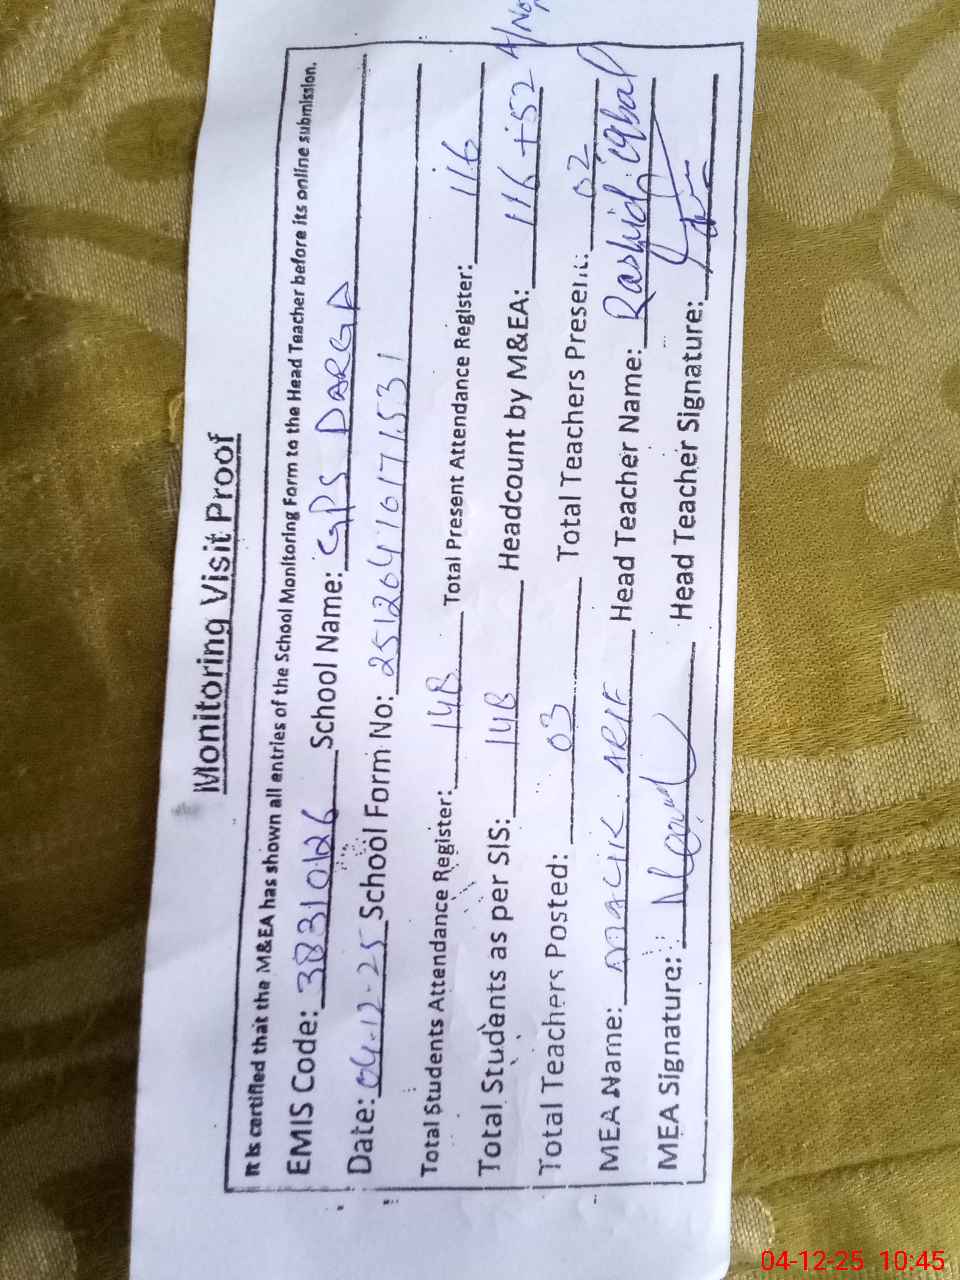 Monitoring Visit Proof
It is certified that the M&EA has shown all entries of the School Monitoring Form to the Head Teacher before its online submission.
EMIS Code: 38310126 School Name: GPS DARGA
Date: 04-12-25 School Form No: 25120410171531
Total Students Attendance Register: 148 Total Present Attendance Register: 116
Total Students as per SIS: 148 Headcount by M&EA: 116+52 A/No
Total Teachers Posted: 03 Total Teachers Present: 02
MEA Name: MALIK ARIF Head Teacher Name: Rashid iqbal
MEA Signature: Head Teacher Signature:
04-12-25 10:45